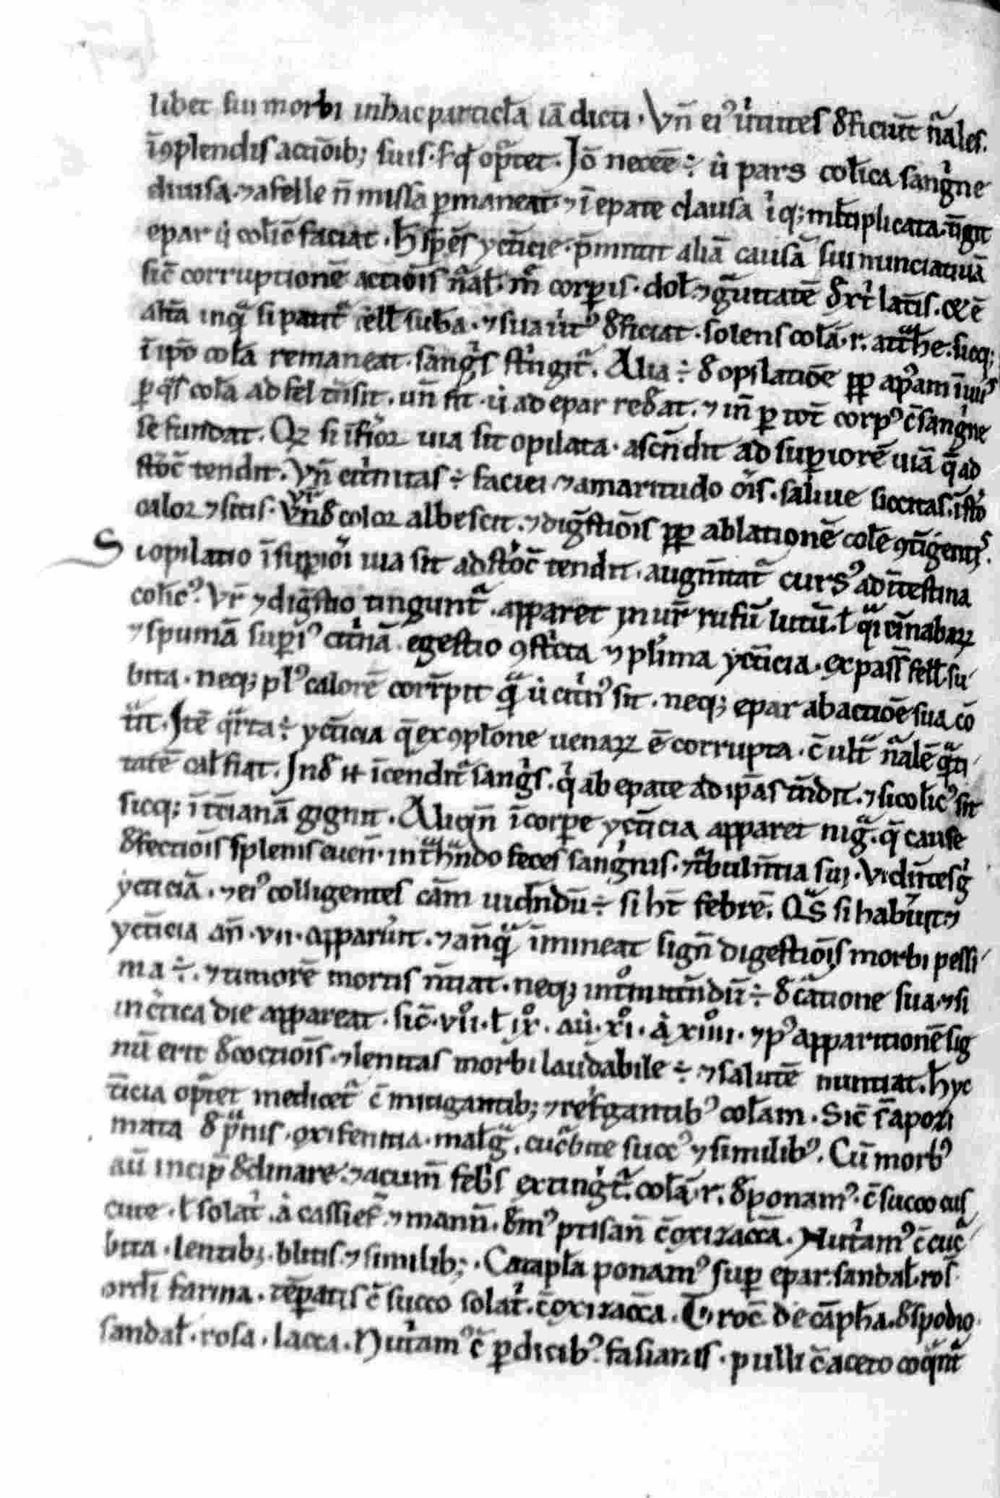 libet sui morbi in hac particl̄a iā dicti. Vn̄ ei⁹ ỉtutes deficiūt n̄ales.
ī ꝯplendis actiōib; suis. sꝫ oꝑtet. Jō neceē ÷ ỉ pars col̄ica sangͥne
diuisa. ⁊ a felle n̄ missa ꝑmaneat ⁊ ī epate clausa mͣltiplicata. tīgit
epar col̄ic̄ faciat. h̄ sp̄es yctͥcie. p̄mittit aliā causā sui nunciatiuā
sic̄ corruptionē actiōis n̄al̄. corꝑis. dol̄. ⁊ gͣuitatē dext̓ latis.
inqͣ si patit̉ cell̄ sub̄a. ⁊ sua ỉt⁹ deficiat. solens col̄ā. r. att̓he. sicq;
ī ip̄o col̄a remaneat. sangͥs stīgit̉. Alia ÷ de opilatiōe ꝓp̄
ꝑ qͣs col̄a ad fel tͣnsit. un̄ fit. ỉ ad epar redeat. ⁊ in̄ ꝑ tot̄ corp⁹ c̄ sangͥne
se fundat. Qꝫ si īfioꝛ uia sit opilata. ascn̄dit ad suꝑiorē uiā q̄ ad
stōc̄ tendit. Vn̄ citͥnitas ÷ faciei ⁊ amaritudo oīs. saliue siccitas.
caloꝛ ⁊ sitis. Vr̄ color albescit. ⁊ digͤstiōis ꝓp̄ ablationē col̄e
Si opilatio ī suꝑiōi uia sit ad stoc̄ tendit. augm̄tat̉ curs⁹ ad ītestina
col̄ic⁹. Vr̄ ⁊ digͤstio tingunt̉. apparet in ur̄ rufū lutū. l̄ qͣi cīnabaꝝ
⁊ spumā suꝑi⁹ citͥnā. egestio ꝯstͥcta ⁊ plͥima yctͥicia. ex pass̄ fell̄ su
bita. neq; pl⁹ calorē corrūpit qͣ ỉ citͥn⁹ sit. neq; epar ab actiōe sua
Itē qͣrta ÷ yctͥicia q̄ ex ꝯpl̄one uenaꝝ ē corrupta. c̄ ult̉ n̄alē qͣli
tatē cal̄fiat. Inde īcendit̉ sangͥs. qͥ ab epate ad ip̄as tn̄dit. ⁊ si col̄ic⁹ sit
sicq; ī tͥcianā gignit. Aliqn̄ ī corꝑe yctͥicia apparet nigͣ. q̄ cause
defectiōis splenis euen̄. in tͣhn̄do feces sangͥnis. ⁊ tͥbuln̄tia sui. Vidn̄tes gͥ
ycticiā. ⁊ ei⁹ colligentes cām uidn̄dū ÷ si h̄t febrē. Qͣ si habūit ⁊
yctͥicia an̄. vii. apparūit. ⁊ anqͣ īmineat sign̄ digestiōis morbi pessi
ma ÷. ⁊ timorē mortis nūtiat. neq; intͦmittn̄dū ÷ de cātione sua. ⁊ si
in cͥtica die appareat. sic̄. vii. l̄ ix. aut̄. xi. ł xiiii. ⁊ p⁹ apparitionē sig
nū erit decoctiōis. ⁊ lenitas morbi laudabile ÷ ⁊ salutē nuntiat. h̄ yc
tͥicia opꝛtet medicet̉ c̄ mitigantib; ⁊ refͥgantib⁹ col̄am. Sic̄ ī apozi
mata de pͥnis. oxifenitia. malgͣ. cucͥbite succ⁹ ⁊ similib⁹. Cū morb⁹
aū incip̄ declinare. ⁊ acumn̄ febͥs extingt̉. col̄ā. r. deponam⁹. c̄ succo cus
cute. l̄ solat̓. ł cassief̄. ⁊ mann̄. dem⁹ ptisan̄ c̄ oxizaccā. Nutͥam⁹ c̄ cucͥ
bita. lentib; blitis ⁊ similib;. Catapl̄a ponam⁹ suꝑ epar. sandal̄. ros̄
ordī farina. tēꝑatis c̄ succo solat̓. c̄ oxizaccā. Tͥ roc̄ de cāpha. de spodio.
sandal̄. rosa. lacca. Nutͥam⁹ c̄ ꝑdicib⁹. fasianis. pulli c̄ aceto coqͣnt̉